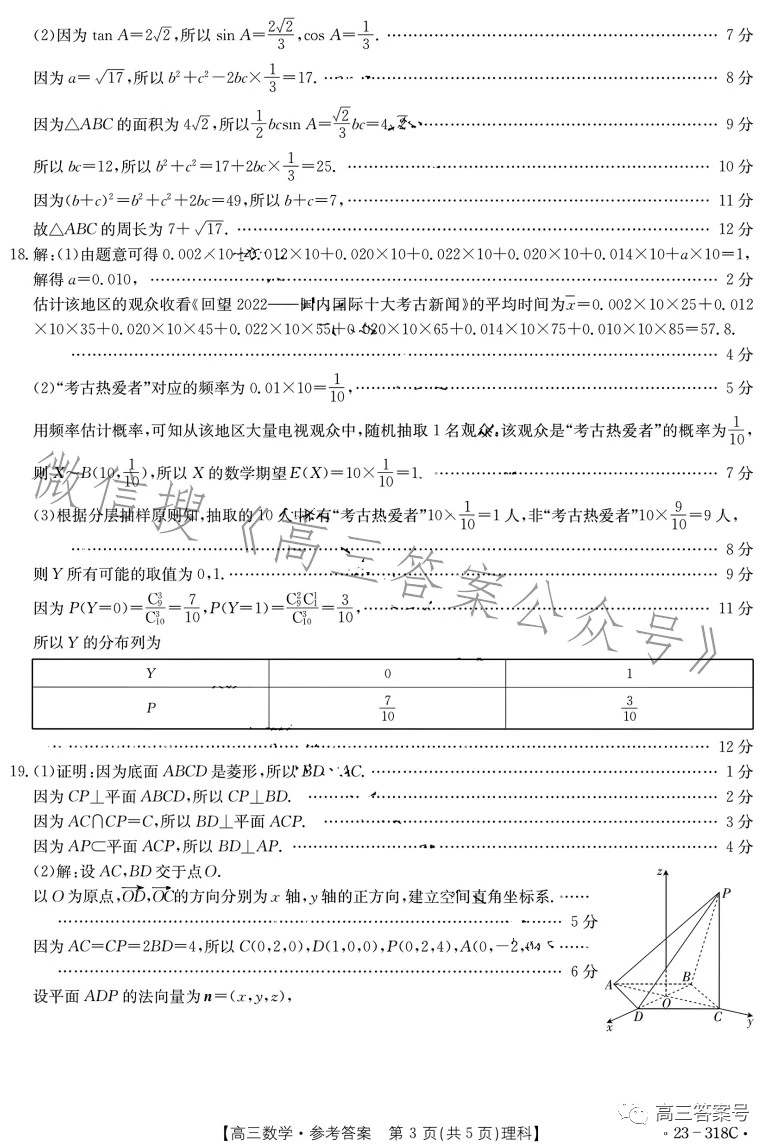 (2)因为 tan A=2√2,所以 sin A=2√2/3,cos A=1/3. …… 7 分
因为 a=√17,所以 b²+c²-2bc×1/3=17. …… 8 分
因为△ABC 的面积为 4√2,所以1/2 bcsin A=√2/3 bc=4√2, …… 9 分
所以 bc=12,所以 b²+c²=17+2bc×1/3=25. …… 10 分
因为(b+c)²=b²+c²+2bc=49,所以 b+c=7, …… 11 分
故△ABC 的周长为 7+√17. …… 12 分
18. 解:(1)由题意可得 0.002×10+0.012×10+0.020×10+0.022×10+0.020×10+0.014×10+a×10=1,
解得 a=0.010, …… 2 分
估计该地区的观众收看《回望 2022——国内国际十大考古新闻》的平均时间为x̄=0.002×10×25+0.012
×10×35+0.020×10×45+0.022×10×55+0.020×10×65+0.014×10×75+0.010×10×85=57.8.
…… 4 分
(2)“考古热爱者”对应的频率为 0.01×10=1/10, …… 5 分
用频率估计概率,可知从该地区大量电视观众中,随机抽取 1 名观众,该观众是“考古热爱者”的概率为1/10,
则 X~B(10,1/10),所以 X 的数学期望 E(X)=10×1/10=1. …… 7 分
(3)根据分层抽样原则知,抽取的 10 人中有“考古热爱者”10×1/10=1 人,非“考古热爱者”10×9/10=9 人,
…… 8 分
则 Y 所有可能的取值为 0,1. …… 9 分
因为 P(Y=0)=C₉³/C₁₀³=7/10,P(Y=1)=C₉²C₁¹/C₁₀³=3/10, …… 11 分
所以 Y 的分布列为
Y 0 1
P 7/10 3/10
…… 12 分
19. (1)证明:因为底面 ABCD 是菱形,所以 BD⊥AC. …… 1 分
因为 CP⊥平面 ABCD,所以 CP⊥BD. …… 2 分
因为 AC∩CP=C,所以 BD⊥平面 ACP. …… 3 分
因为 AP⊂平面 ACP,所以 BD⊥AP. …… 4 分
(2)解:设 AC,BD 交于点 O.
以 O 为原点,OD→,OC→的方向分别为 x 轴,y 轴的正方向,建立空间直角坐标系. ……
…… 5 分
因为 AC=CP=2BD=4,所以 C(0,2,0),D(1,0,0),P(0,2,4),A(0,-2, ……
…… 6 分
设平面 ADP 的法向量为 n=(x,y,z),
z
P
A
B
O
D
C
x
y
微信搜《高三答案公众号》
高三答案号
【高三数学·参考答案 第 3 页(共 5 页)理科】
·23-318C·